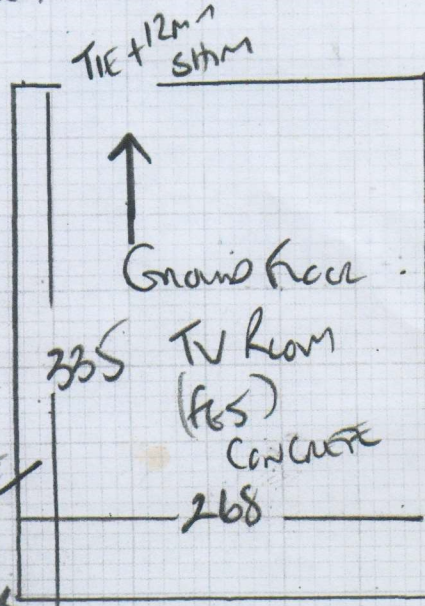 TIE + 12mm
SHIM
GROUND FLOOR
335 TV ROOM
(FE5)
CONCRETE
268